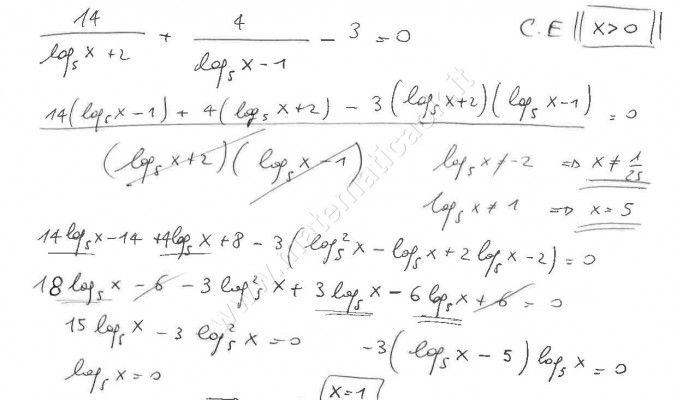 14/(log₅x+2) + 4/(log₅x-1) - 3 = 0   C.E || x>0 ||
(14(log₅x-1) + 4(log₅x+2) - 3(log₅x+2)(log₅x-1))/((log₅x+2)(log₅x-1)) = 0
log₅x≠-2 ⇒ x≠1/25
log₅x≠1 ⇒ x=5
14log₅x-14+4log₅x+8-3(log₅²x-log₅x+2log₅x-2)=0
18log₅x-6-3log₅x+3log₅x-6log₅x+6=0
15log₅x-3log₅²x=0   -3(log₅x-5)log₅x=0
log₅x=0   x=1
www.matematicaok.it